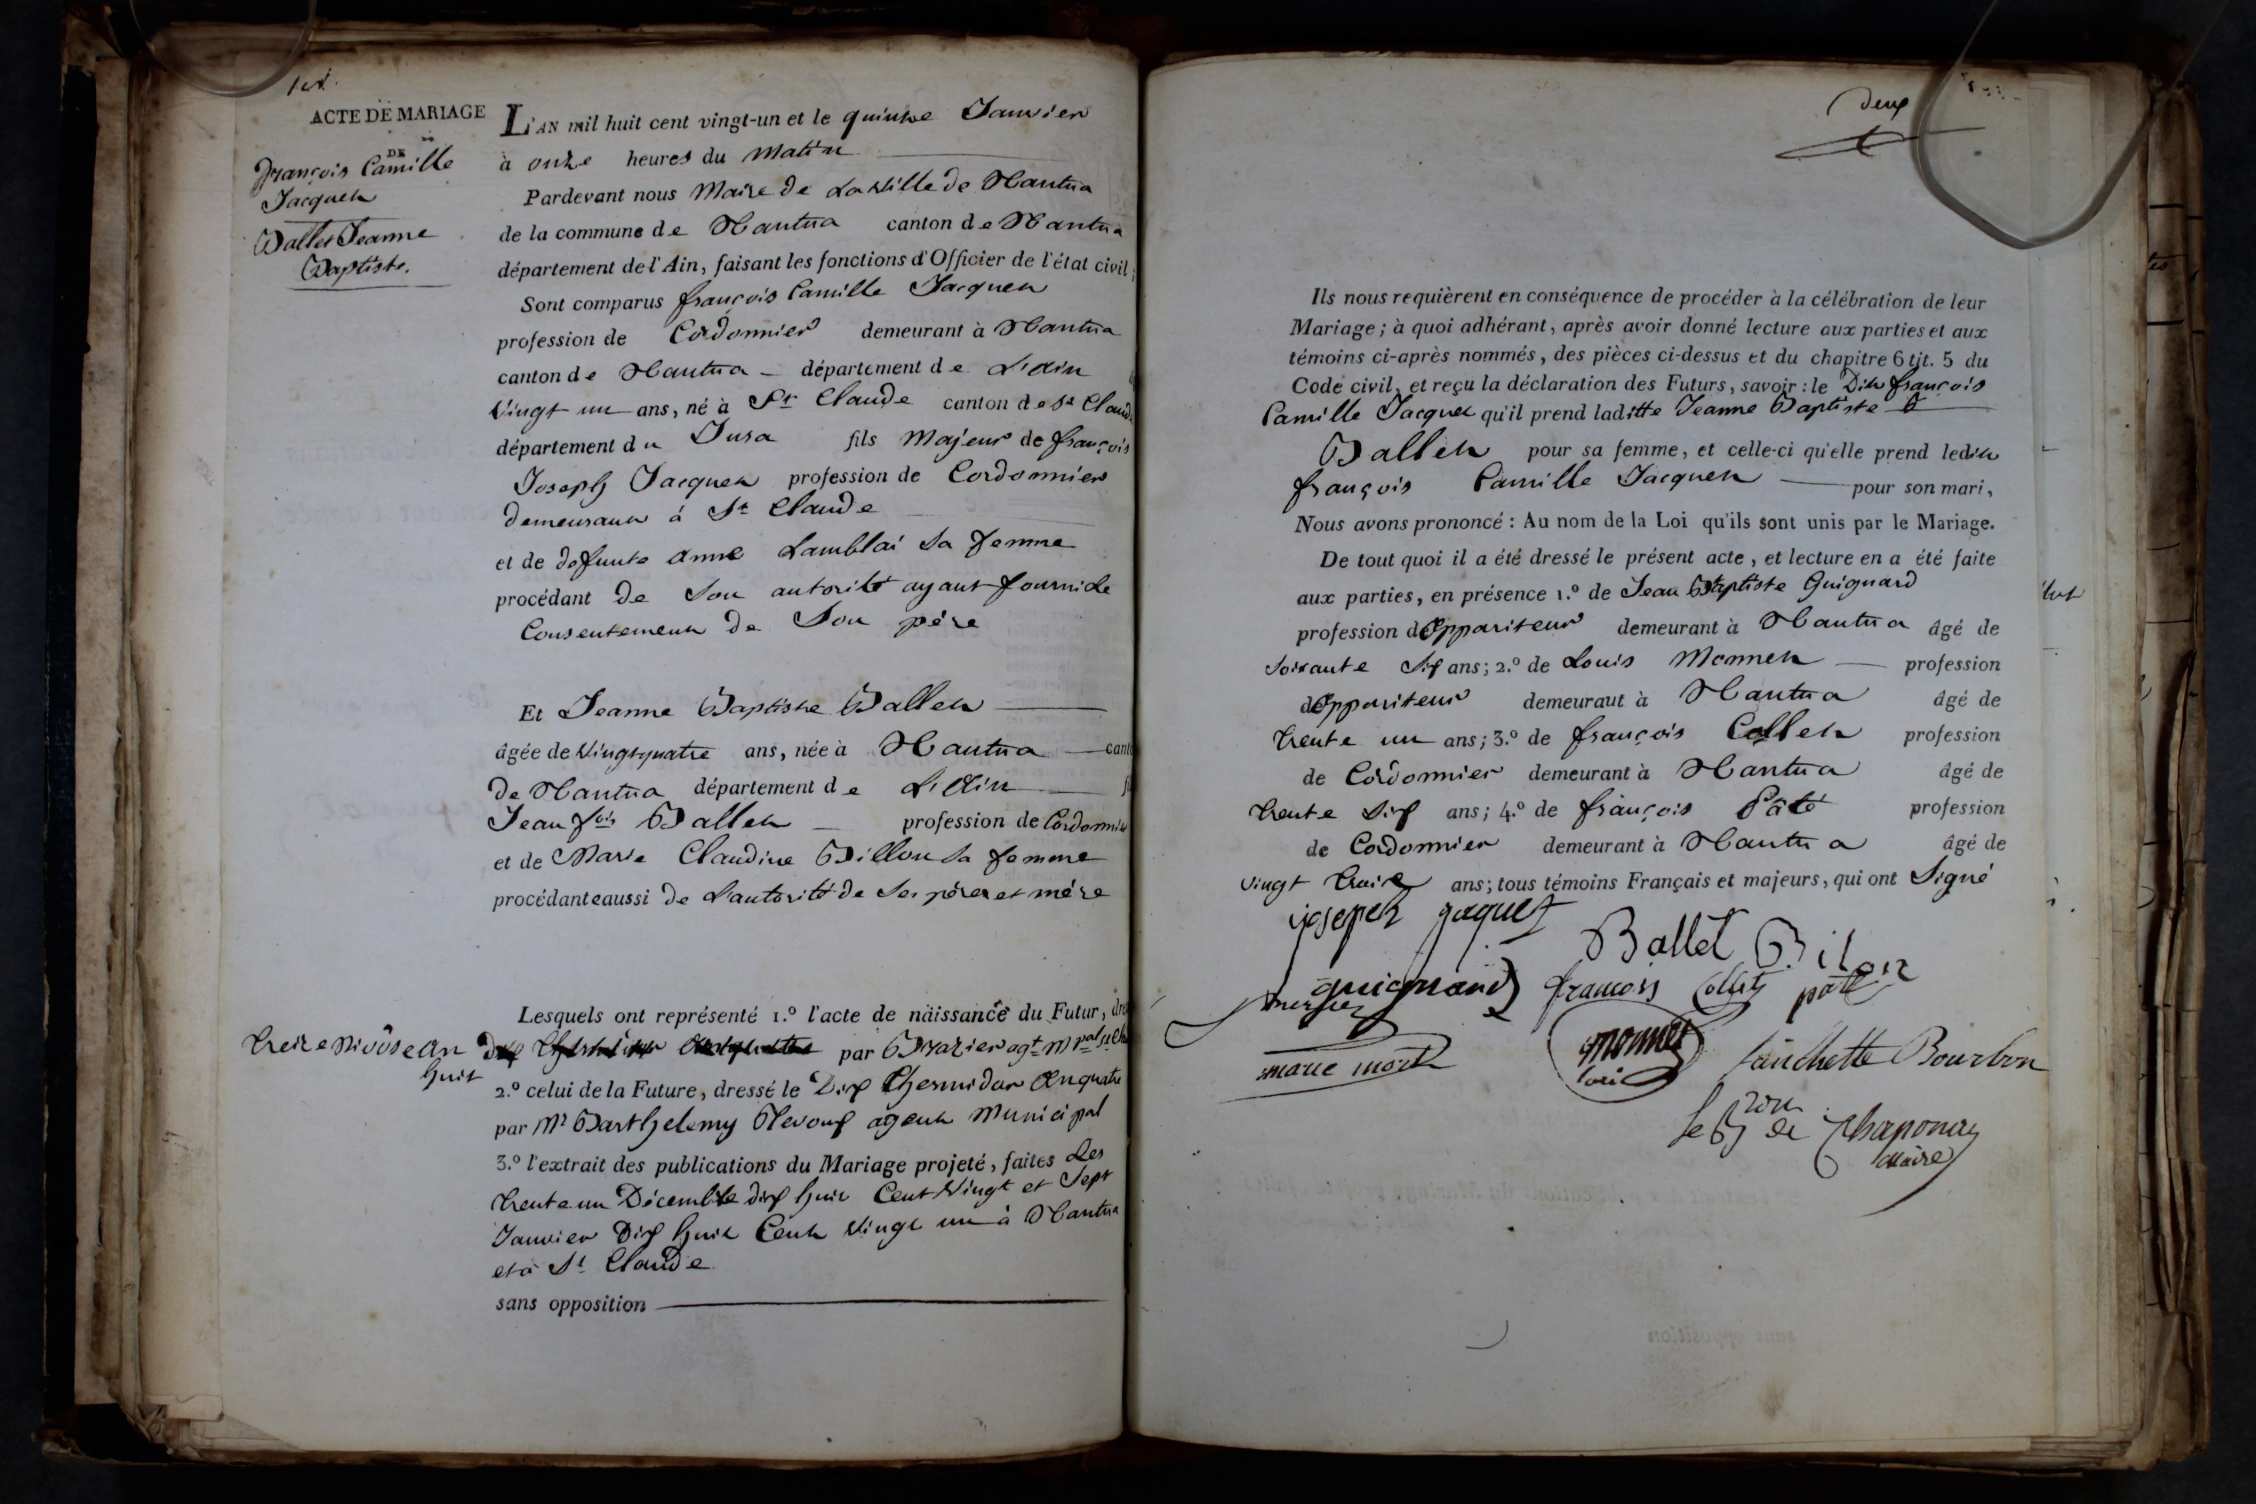 1er
ACTE DE MARIAGE
DE
François Camille
Jacquet
Ballet Jeanne
Baptiste.
L'AN mil huit cent vingt-un et le quinze Janvier
à onze heures du Matin
Pardevant nous Maire de La Ville de Nantua
de la commune de Nantua canton de Nantua
département de l'Ain, faisant les fonctions d'Officier de l'état civil,
Sont comparus françois Camille Jacquet
profession de Cordonnier demeurant à Nantua
canton de Nantua département de L'Ain
Vingt un ans, né à St Claude canton de St Claude
département du Jura fils Majeur de françois
Joseph Jacquet profession de Cordonnier
demeurant à St Claude
et de defunte Anne Lamblai sa femme
procédant de son autorité ayant fourni le
Consentement de Son père
Et Jeanne Baptiste Ballet
âgée de Vingt quatre ans, née à Nantua cant
de Nantua département de L'Ain
Jean fois Ballet profession de Cordonnier
et de Marie Claudine Billon sa femme
procédante aussi de L'autorité de Ses pères et mère
Lesquels ont représenté 1.º l'acte de naissance du Futur,
treize Nivôse an
huit
par Brazier agt mpal
2.º celui de la Future, dressé le Dix Thermidor An quatre
par Mr Barthelemy agent Municipal
3.º l'extrait des publications du Mariage projeté, faites Les
trente un Décembre dix huit Cent Vingt et Sept
Janvier Dix huit Cent Vingt un à Nantua
et à St Claude
sans opposition
Deux
Ils nous requièrent en conséquence de procéder à la célébration de leur
Mariage; à quoi adhérant, après avoir donné lecture aux parties et aux
témoins ci-après nommés, des pièces ci-dessus et du chapitre 6 tit. 5 du
Code civil, et reçu la déclaration des Futurs, savoir: le Dit françois
Camille Jacquet qu'il prend laditte Jeanne Baptiste
Ballet pour sa femme, et celle-ci qu'elle prend ledit
françois Camille Jacquet pour son mari,
Nous avons prononcé: Au nom de la Loi qu'ils sont unis par le Mariage.
De tout quoi il a été dressé le présent acte, et lecture en a été faite
aux parties, en présence 1.º de Jean Baptiste Guignard
profession d'appariteur demeurant à Nantua âgé de
soixante Six ans; 2.º de Louis Monnet profession
d'appariteur demeuraut à Nantua âgé de
trente un ans; 3.º de françois Collet profession
de Cordonnier demeurant à Nantua âgé de
trente Six ans; 4.º de françois Pâté profession
de Cordonnier demeurant à Nantua âgé de
vingt treize ans; tous témoins Français et majeurs, qui ont Signé
joseph jaquet
Ballet Bilon
guignard françois Collet pâté
monnet
marie moret
fanchette Bourbon
le Bon de Chaponay
Maire